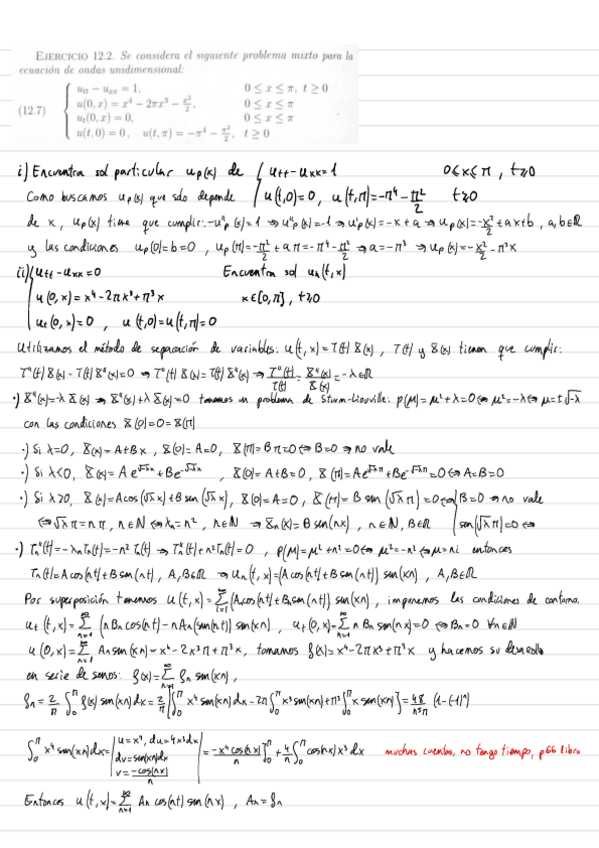 EJERCICIO 12.2. Se considera el siguiente problema mixto para la
ecuación de ondas unidimensional:
(12.7) { u_tt − u_xx = 1, 0 ≤ x ≤ π, t ≥ 0
u(0, x) = x⁴ − 2πx³ − x²/2, 0 ≤ x ≤ π
u_t(0, x) = 0, 0 ≤ x ≤ π
u(t, 0) = 0, u(t, π) = −π⁴ − π²/2, t ≥ 0
i) Encuentra sol particular u_p(x) de { u_tt − u_xx = 1 0≤x≤π, t≥0
Como buscamos u_p(x) que solo depende { u(t,0)=0, u(t,π)=−π⁴−π²/2 t≥0
de x, u_p(x) tiene que cumplir: −u''_p(x)=1 ⇒ u''_p(x)=−1 ⇒ u'_p(x)=−x+a ⇒ u_p(x)=−x²/2+ax+b, a,b∈ℝ
y las condiciones u_p(0)=b=0, u_p(π)=−π²/2+aπ=−π⁴−π²/2 ⇒ a=−π³ ⇒ u_p(x)=−x²/2−π³x
ii) { u_tt − u_xx = 0 Encuentra sol u_h(t,x)
u(0,x) = x⁴−2πx³+π³x x∈[0,π], t≥0
u_t(0,x)=0, u(t,0)=u(t,π)=0
Utilizamos el método de separación de variables: u(t,x)=T(t)X(x), T(t) y X(x) tienen que cumplir:
T''(t)X(x)−T(t)X''(x)=0 ⇒ T''(t)X(x)=T(t)X''(x) ⇒ T''(t)/T(t)=X''(x)/X(x)=−λ∈ℝ
·) X''(x)=−λX(x) ⇒ X''(x)+λX(x)=0 tenemos un problema de Sturm-Liouville: p(μ)=μ²+λ=0 ⇔ μ²=−λ ⇔ μ=±√−λ
con las condiciones X(0)=0=X(π)
·) Si λ=0, X(x)=A+Bx, X(0)=A=0, X(π)=Bπ=0 ⇔ B=0 ⇒ no vale
·) Si λ<0, X(x)=Ae^{√−λx}+Be^{−√−λx}, X(0)=A+B=0, X(π)=Ae^{√−λπ}+Be^{−√−λπ}=0 ⇔ A=B=0
·) Si λ>0, X(x)=Acos(√λx)+Bsen(√λx), X(0)=A=0, X(π)=Bsen(√λπ)=0 ⇔ { B=0 ⇒ no vale
⇔ √λπ=nπ, n∈N ⇔ λn=n², n∈N ⇒ Xn(x)=Bsen(nx), n∈N, B∈ℝ { sen(√λπ)=0 ⇔
·) Tn''(t)=−λnTn(t)=−n²Tn(t) ⇒ Tn''(t)+n²Tn(t)=0, p(μ)=μ²+n²=0 ⇔ μ²=−n² ⇔ μ=ni entonces
Tn(t)=Acos(nt)+Bsen(nt), A,B∈ℝ ⇒ un(t,x)=(Acos(nt)+Bsen(nt))sen(xn), A,B∈ℝ
Por superposición tenemos u(t,x)=∑(Ancos(nt)+Bnsen(nt))sen(xn), imponemos las condiciones de contorno.
ut(t,x)=∑(nBncos(nt)−nAnsen(nt))sen(xn), ut(0,x)=∑nBnsen(nx)=0 ⇔ Bn=0 ∀n∈N
u(0,x)=∑Ansen(nx)=x⁴−2x³π+π³x, tomamos f(x)=x⁴−2πx³+π³x y hacemos su desarrollo
en serie de senos: f(x)=∑fnsen(xn),
fn=2/π∫f(x)sen(xn)dx=2/π[∫x⁴sen(xn)dx−2π∫x³sen(xn)+π³∫xsen(xn)]=48/n⁵π(1−(−1)ⁿ)
∫x⁴sen(xn)dx=|u=x⁴, du=4x³dx
dv=sen(nx)dx
v=−cos(nx)/n| =−x⁴cos(nx)/n]+4/n∫cos(nx)x³dx muchas cuentas, no tengo tiempo, p66 libro
Entonces u(t,x)=∑Ancos(nt)sen(nx), An=fn